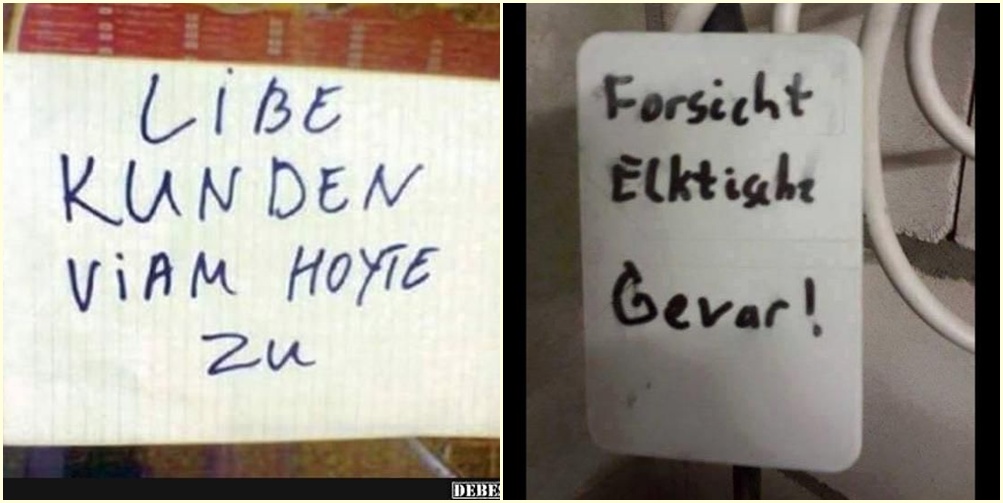 LIBE
KUNDEN
ViAM HOYTE
ZU
DEBES
Forsicht
Elktische
Gevar!